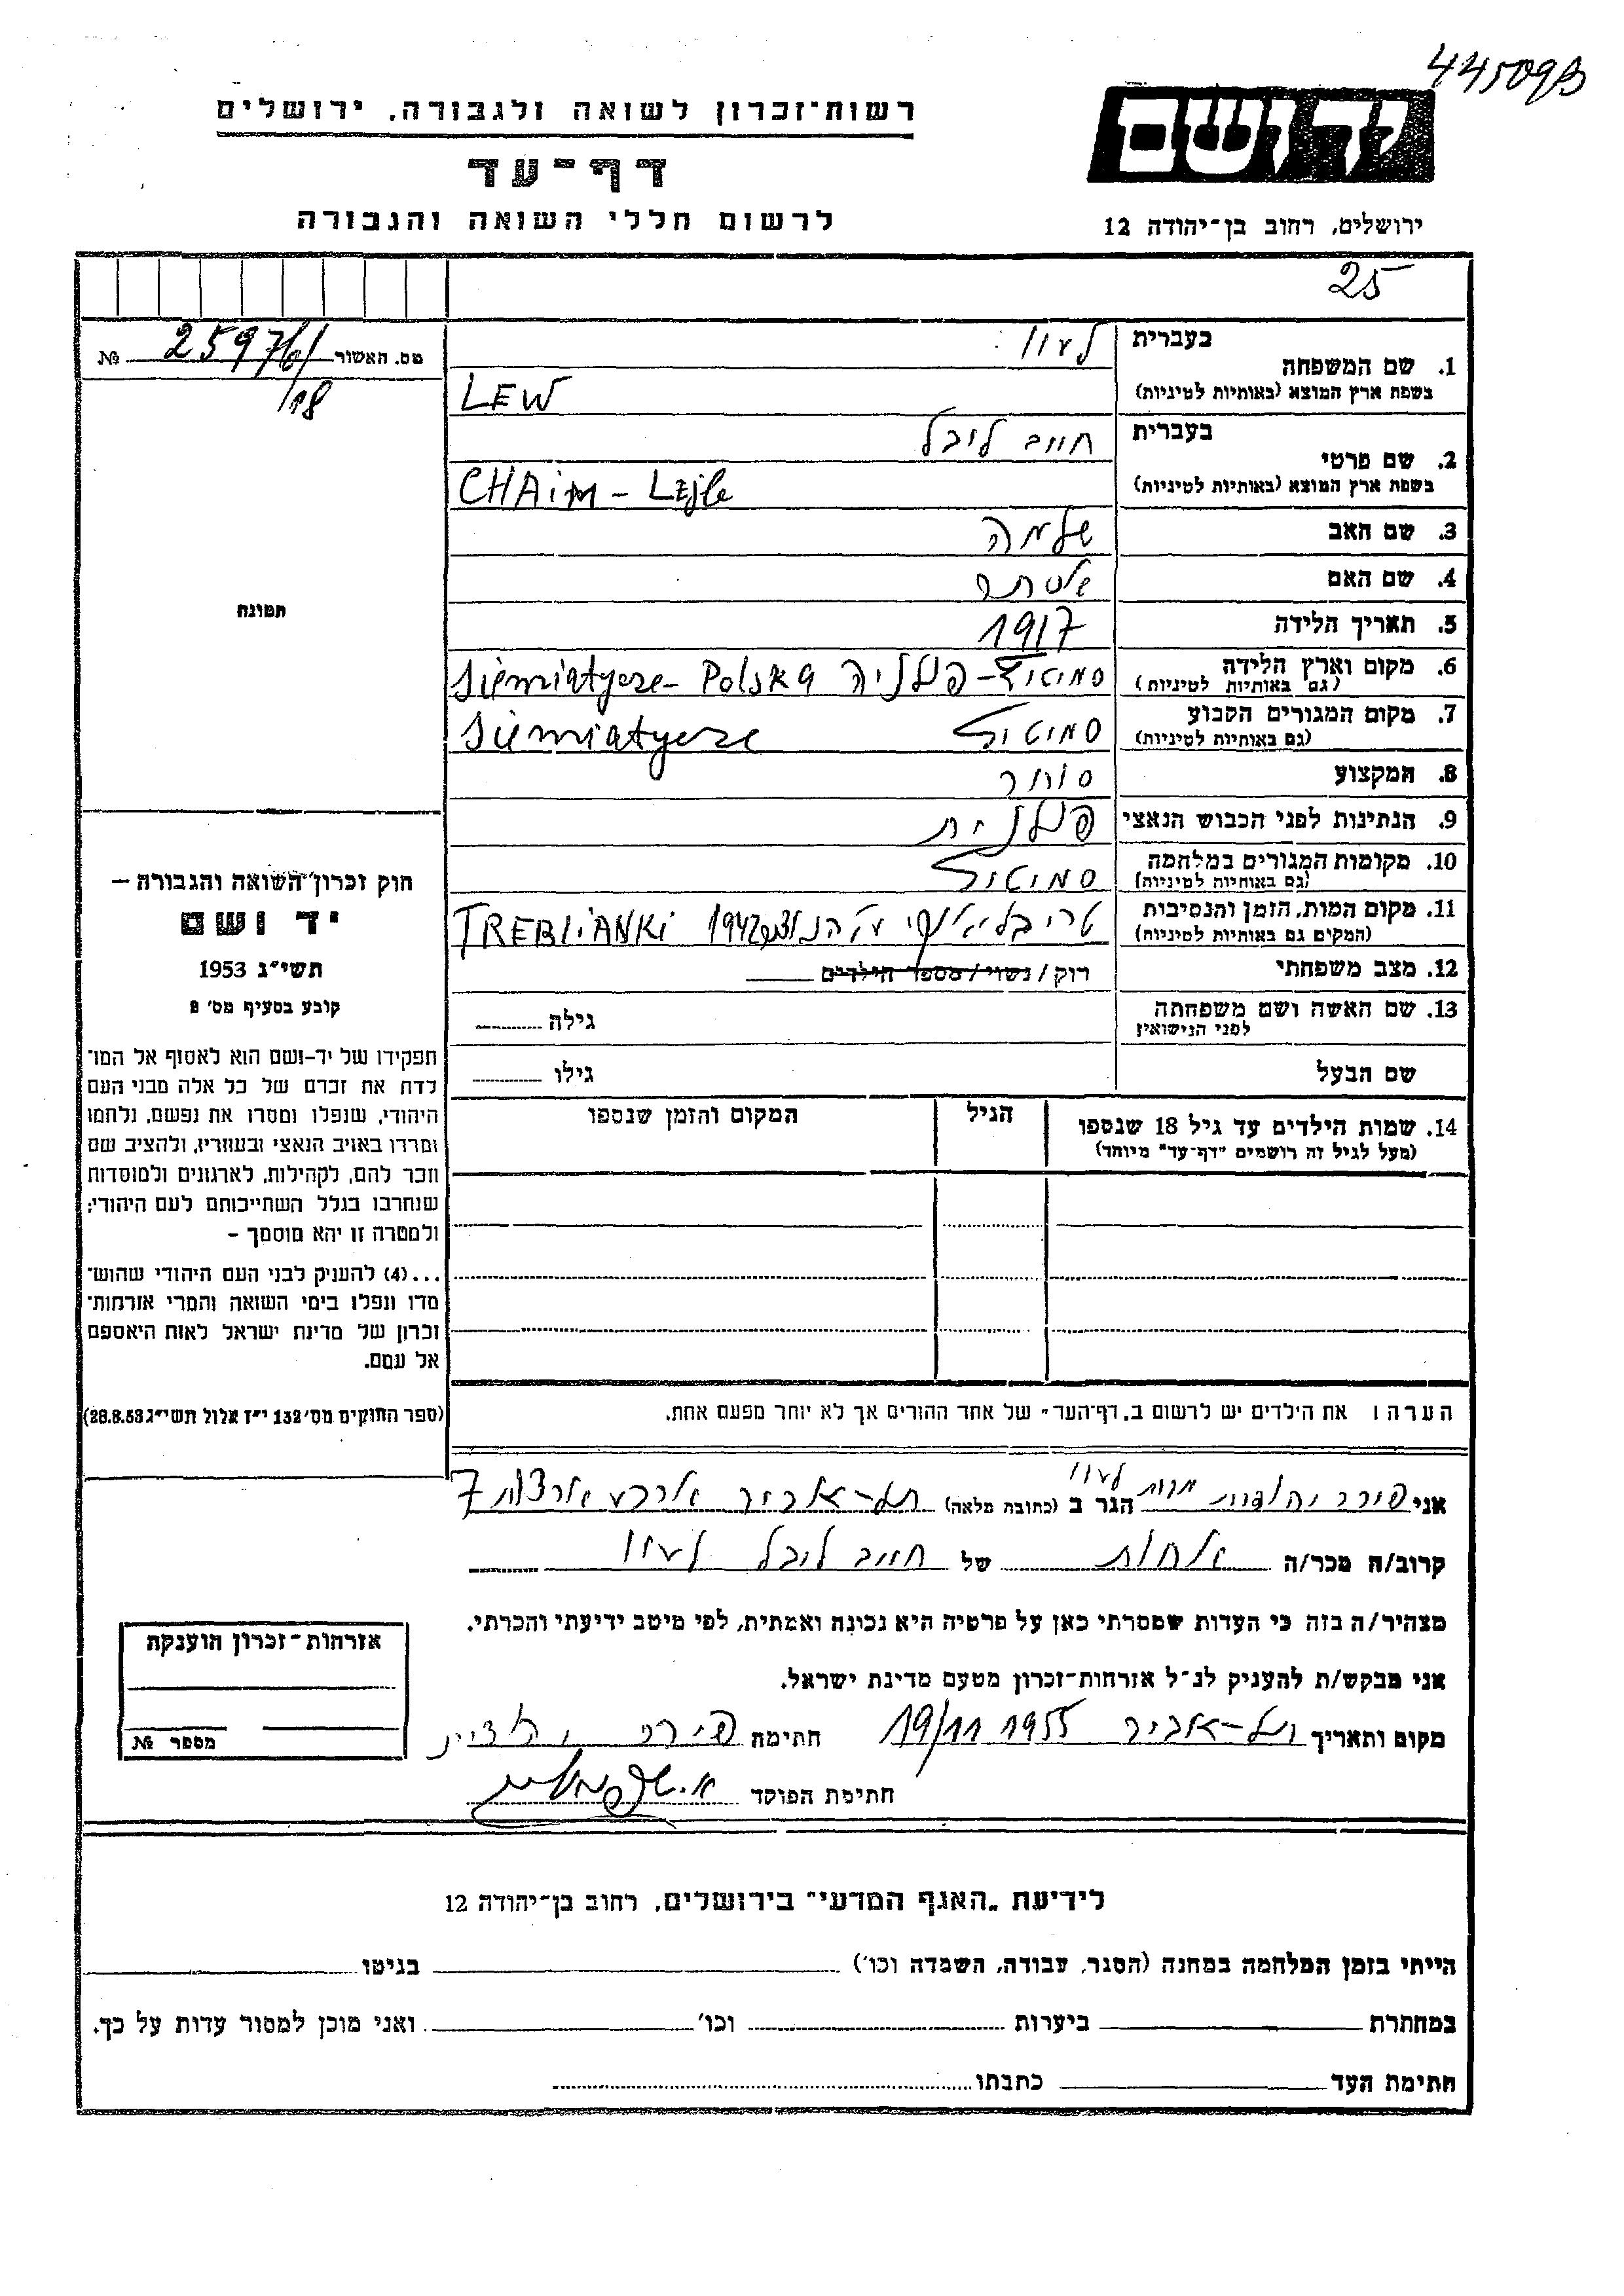 44509B
רשות־זכרון לשואה ולגבורה, ירושלים
דף־עד
לרשום חללי השואה והגבורה
יד ושם
ירושלים, רחוב בן־יהודה 12
25
מס. האשור 2597/61 №
/18
בעברית לעוו
1. שם המשפחה
בשפת ארץ המוצא (באותיות לטיניות) LEW
בעברית חיים לייבל
2. שם פרטי
בשפת ארץ המוצא (באותיות לטיניות) CHAiM - Lejle
3. שם האב שלמה
4. שם האם אסתר
5. תאריך הלידה 1917
6. מקום וארץ הלידה סמיטיץ - פולניה Siemiatycze - Polska
(גם באותיות לטיניות)
7. מקום המגורים הקבוע סמיטיץ Siemiatycze
(גם באותיות לטיניות)
8. המקצוע סוחר
9. הנתינות לפני הכבוש הנאצי פולנית
10. מקומות המגורים במלחמה סמיטיץ
(גם באותיות לטיניות)
11. מקום המות, הזמן והנסיבות 1942 TREBLiANKi
(המקום גם באותיות לטיניות)
12. מצב משפחתי רוק / נשוי / מספר הילדים
13. שם האשה ושם משפחתה גילה
לפני הנישואין
שם הבעל גילו
14. שמות הילדים עד גיל 18 שנספו הגיל המקום והזמן שנספו
(מעל לגיל זה רושמים "דף־עד" מיוחד)
הערה: את הילדים יש לרשום ב„דף־העד" של אחד ההורים אך לא יותר מפעם אחת.
תמונה
חוק זכרון השואה והגבורה —
יד ושם
תשי"ג 1953
קובע בסעיף מס׳ 2
תפקידו של יד-ושם הוא לאסוף אל המו־
לדת את זכרם של כל אלה מבני העם
היהודי, שנפלו ומסרו את נפשם, נלחמו
ומרדו באויב הנאצי ובעוזריו, ולהציב שם
וזכר להם, לקהילות, לארגונים ולמוסדות
שנחרבו בגלל השתייכותם לעם היהודי;
ולמטרה זו יהא מוסמך –
...(4) להעניק לבני העם היהודי שהוש־
מדו ונפלו בימי השואה והמרי אזרחות־
זכרון של מדינת ישראל לאות היאספם
אל עמם.
(ספר החוקים מס׳ 132 י"ז אלול תשי"ג 28.8.53)
אני לעוו הגר ב (כתובת מלאה) תל-אביב ארבע ארצות 7
קרוב/ה מכר/ה אחות של חיים לייבל לעוו
מצהיר/ה בזה כי העדות שמסרתי כאן על פרטיה היא נכונה ואמתית, לפי מיטב ידיעתי והכרתי.
אני מבקש/ת להעניק לנ״ל אזרחות־זכרון מטעם מדינת ישראל.
מקום ותאריך תל-אביב 19/11 1955 חתימה
חתימת הפוקד
אזרחות־זכרון הוענקה
מספר №
לידיעת „האגף המדעי" בירושלים, רחוב בן־יהודה 12
הייתי בזמן המלחמה במחנה (הסגר, עבודה, השמדה וכו׳) בגיטו
במחתרת ביערות וכו׳ ואני מוכן למסור עדות על כך.
חתימת העד כתבתו